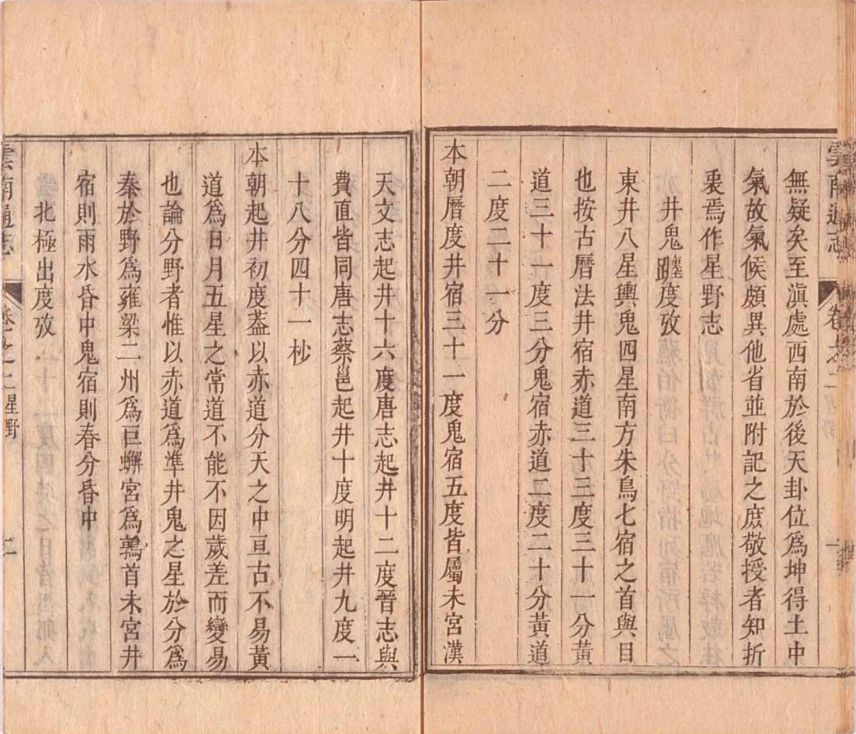 無疑矣至滇處西南於後天卦位爲坤得土中
氣故氣候頗異他省並附記之庶敬授者知折
衷焉作星野志
井鬼躔度攷
東井八星輿鬼四星南方朱鳥七宿之首與目
也按古曆法井宿赤道三十三度三十一分黃
道三十一度三分鬼宿赤道二度二十分黃道
二度二十一分
本朝曆度井宿三十一度鬼宿五度皆屬未宮漢
雲南通志
卷之二星野
二
天文志起井十六度唐志起井十二度晉志與
費直皆同唐志蔡邕起井十度明起井九度一
十八分四十一杪
本朝起井初度葢以赤道分天之中亘古不易黃
道爲日月五星之常道不能不因歲差而變易
也論分野者惟以赤道爲準井鬼之星於分爲
秦於野爲雍梁二州爲巨蠏宮爲鶉首未宮井
宿則雨水昏中鬼宿則春分昏中
北極出度攷